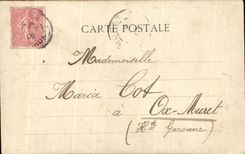 CARTE POSTALE
Mademoiselle
Maria Cot
à Ox-Muret
(Hte Garonne)